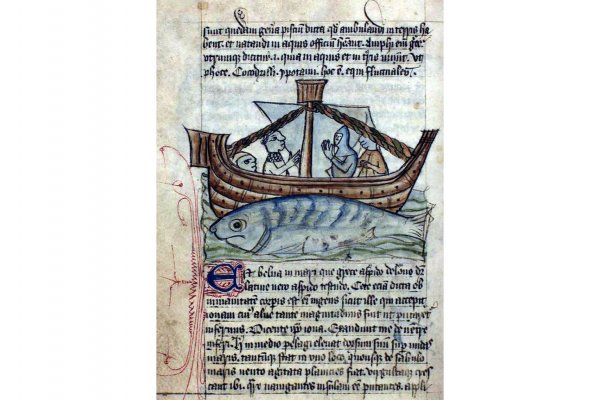 sunt quedam gen̄a pisciu᷑ dicta qd̄ ambulandi in terris ha
bent. et natandi in aquis officiū hēant. Amphi eni᷑ gͬce
utrumque dicit᷑ .i. quia in aquis et in tr̄is uiuu᷑t. ut
phoce. Cocodrilli. ypotami. hoc ē. equi fluctuales.
Est belua in mari que grece aspido delone dr̄
latine uero aspido testudo. Cete eciā dicta ob
immanitatē corꝑis est eni᷑ ingens sicut ille qui accepit
ionam cui᷒ alu᷒ tante magnitudinis fuit ut putaret᷑
infernus. Dicente ip̄o iona. Exaudiuit me de uentre
inferi. in medio pelagi eleuat dorsum suu᷑ suꝑ undas
maris. tantumqꝫ stat in uno loco. quousqꝫ de sabulo
maris uento agitata planicies fiat. uirgultaqꝫ cres
cant ibi. nauigantes insulam ēe putantes. appli